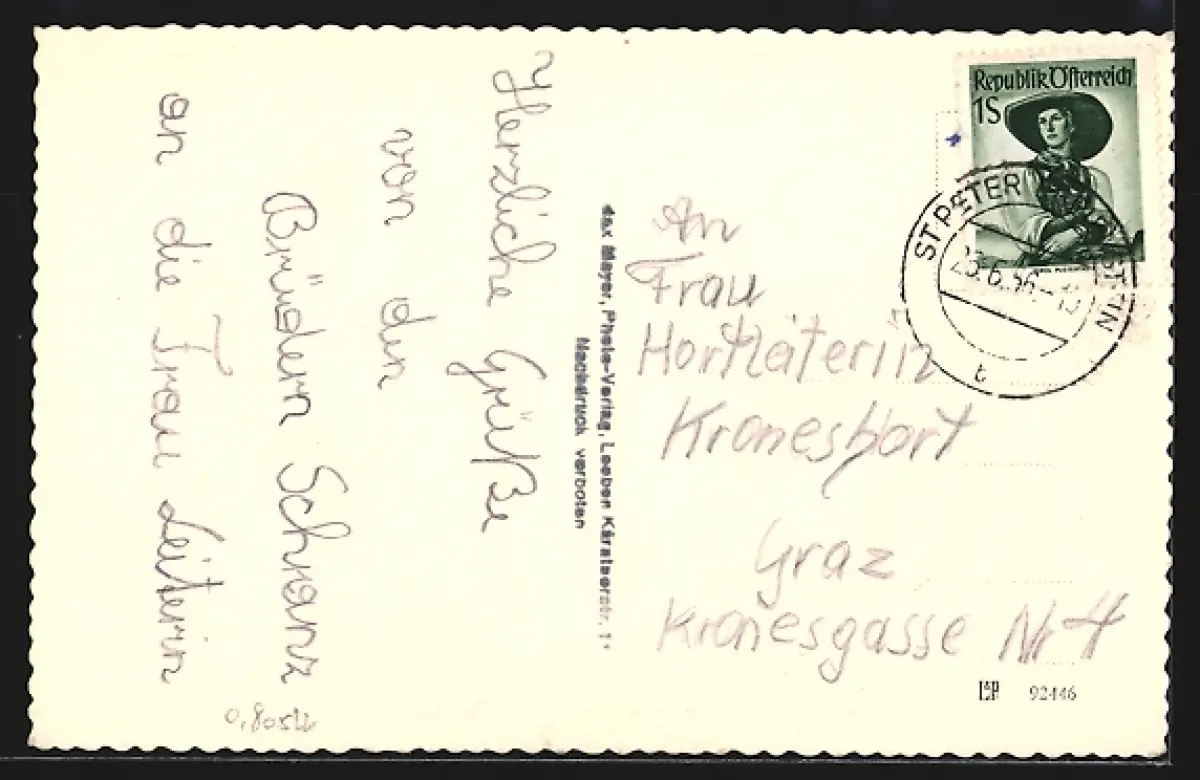 Herzliche Grüße
von den
Brüdern Schranz
an die Frau Leiterin
Mayer, Photo-Verlag, Leoben
Nachdruck verboten
Republik Österreich
1S
ST. PETER
23.6.56
t
An
Frau
Hortleiterin
Graz
Kronesgasse Nr 4
92446